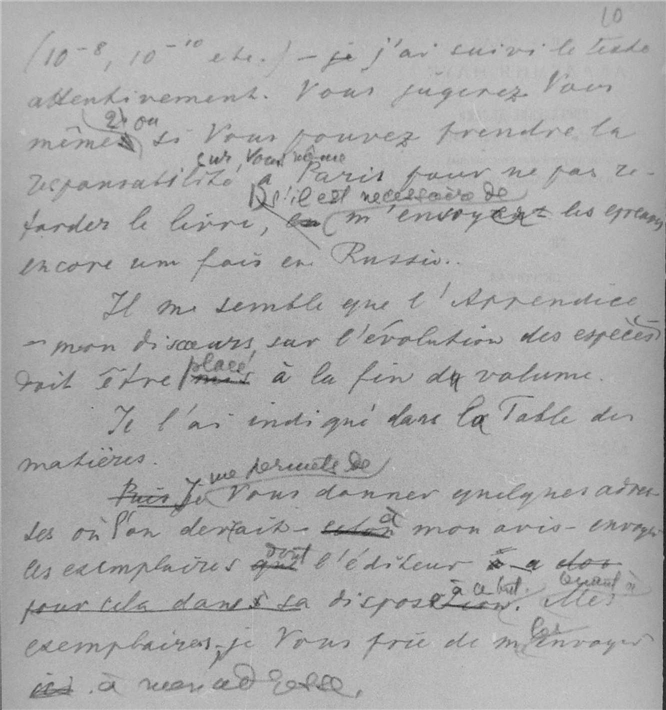 10
(10-8, 10-10 etc.) – je j'ai suivi le texte
attentivement. Vous jugerez Vous
2) ou
même, si Vous pouvez prendre la
sur Vous même
responsabilité à Paris pour ne pas re-
1) s'il est necessaire de
tarder le livre, m'envoyer les epreuves
encore um fois en Russie..
Il me semble que l'Appendice
– mon discours sur l'évolution des espèces
placé
doit être à la fin du volume.
Je l'ai indiqué dans la Table des
matières.
me permets de
Puis Je Vous donner quelques adres-
ses où l'on devrait – à mon avis – envoyer
dont
les exemplaires qui l'éditeur a
à ce but. Quant à
pour cela dans sa disposition. Mes
les
exemplaires, je Vous prie de m'envoyer
ici à mon adresse.